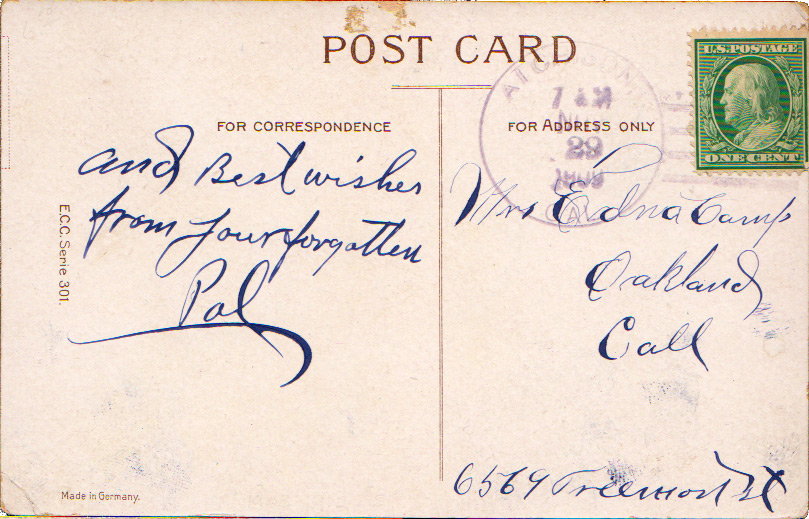 POST CARD
FOR CORRESPONDENCE
and Best wishes
from your forgotten
Pal
E.C.C. Serie 301.
Made in Germany.
FOR ADDRESS ONLY
U.S. POSTAGE
ONE CENT
7 AM
29
1909
CAL
Mrs Edna Camp
Oakland
Call
6569 Freemont St